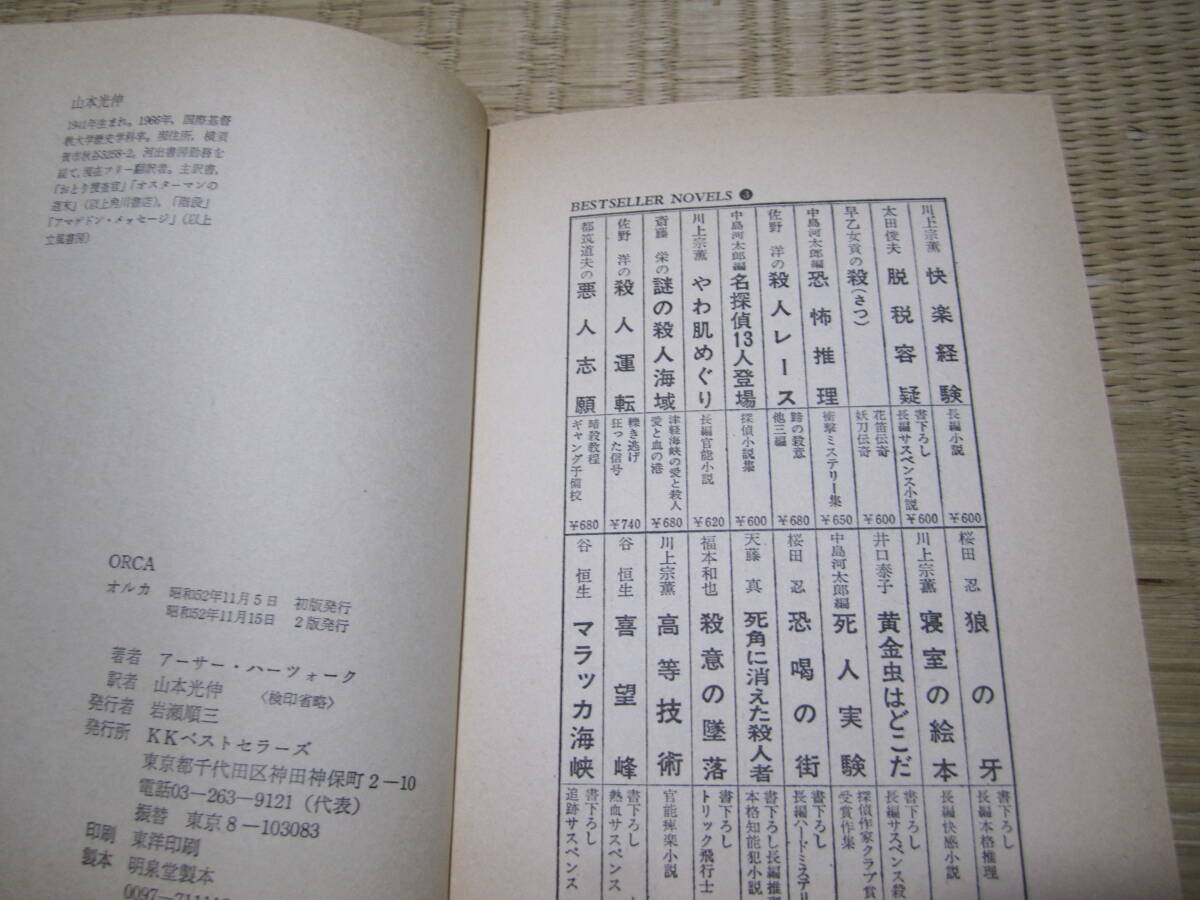 山本光伸
1941年生まれ。1966年、国際基督
教大学歴史学科卒。現住所、横須
賀市秋谷5258-2。河出書房勤務を
経て、現在フリー翻訳者。主訳書、
「おとり捜査官」「オスターマンの
週末」(以上角川書店)、「階段」
「アマゲドン・メッセージ」(以上
立風書房)
ORCA
オルカ 昭和52年11月5日 初版発行
昭和52年11月15日 2版発行
著者 アーサー・ハーツォーク
訳者 山本光伸 〈検印省略〉
発行者 岩瀬順三
発行所 KKベストセラーズ
東京都千代田区神田神保町2―10
電話03―263―9121(代表)
振替 東京8―103083
印刷 東洋印刷
製本 明泉堂製本
BESTSELLER NOVELS ❸
川上宗薫 快楽経験 長編小説 ¥600
太田俊夫 脱税容疑 書下ろし長編サスペンス小説 ¥600
早乙女貢の殺(さつ) 花笛伝奇 妖刀伝奇 ¥600
中島河太郎編 恐怖推理 衝撃ミステリー集 ¥650
佐野 洋の殺人レース 賂の殺意 他三編 ¥680
中島河太郎編 名探偵13人登場 探偵小説集 ¥600
川上宗薫 やわ肌めぐり 長編官能小説 ¥620
斎藤 栄の謎の殺人海域 津軽海峡の愛と殺人 愛と血の港 ¥680
佐野 洋の殺人運転 轢き逃げ 狂った信号 ¥740
都筑道夫の悪人志願 暗殺教程 ギャング予備校 ¥680
桜田 忍 狼の牙 書下ろし長編本格推理
川上宗薫 寝室の絵本 長編快感小説
井口泰子 黄金虫はどこだ 書下ろし長編サスペンス
中島河太郎編 死人実験 探偵作家クラブ賞受賞作集
桜田 忍 恐喝の街 書下ろし長編ハードミステリ
天藤 真 死角に消えた殺人者 書下ろし長編推 本格知能犯小説
福本和也 殺意の墜落 書下ろし トリック飛行士
川上宗薫 高等技術 官能痺楽小説
谷 恒生 喜望峰 書下ろし 熱血サスペンス
谷 恒生 マラッカ海峡 書下ろし 追跡サスペンス